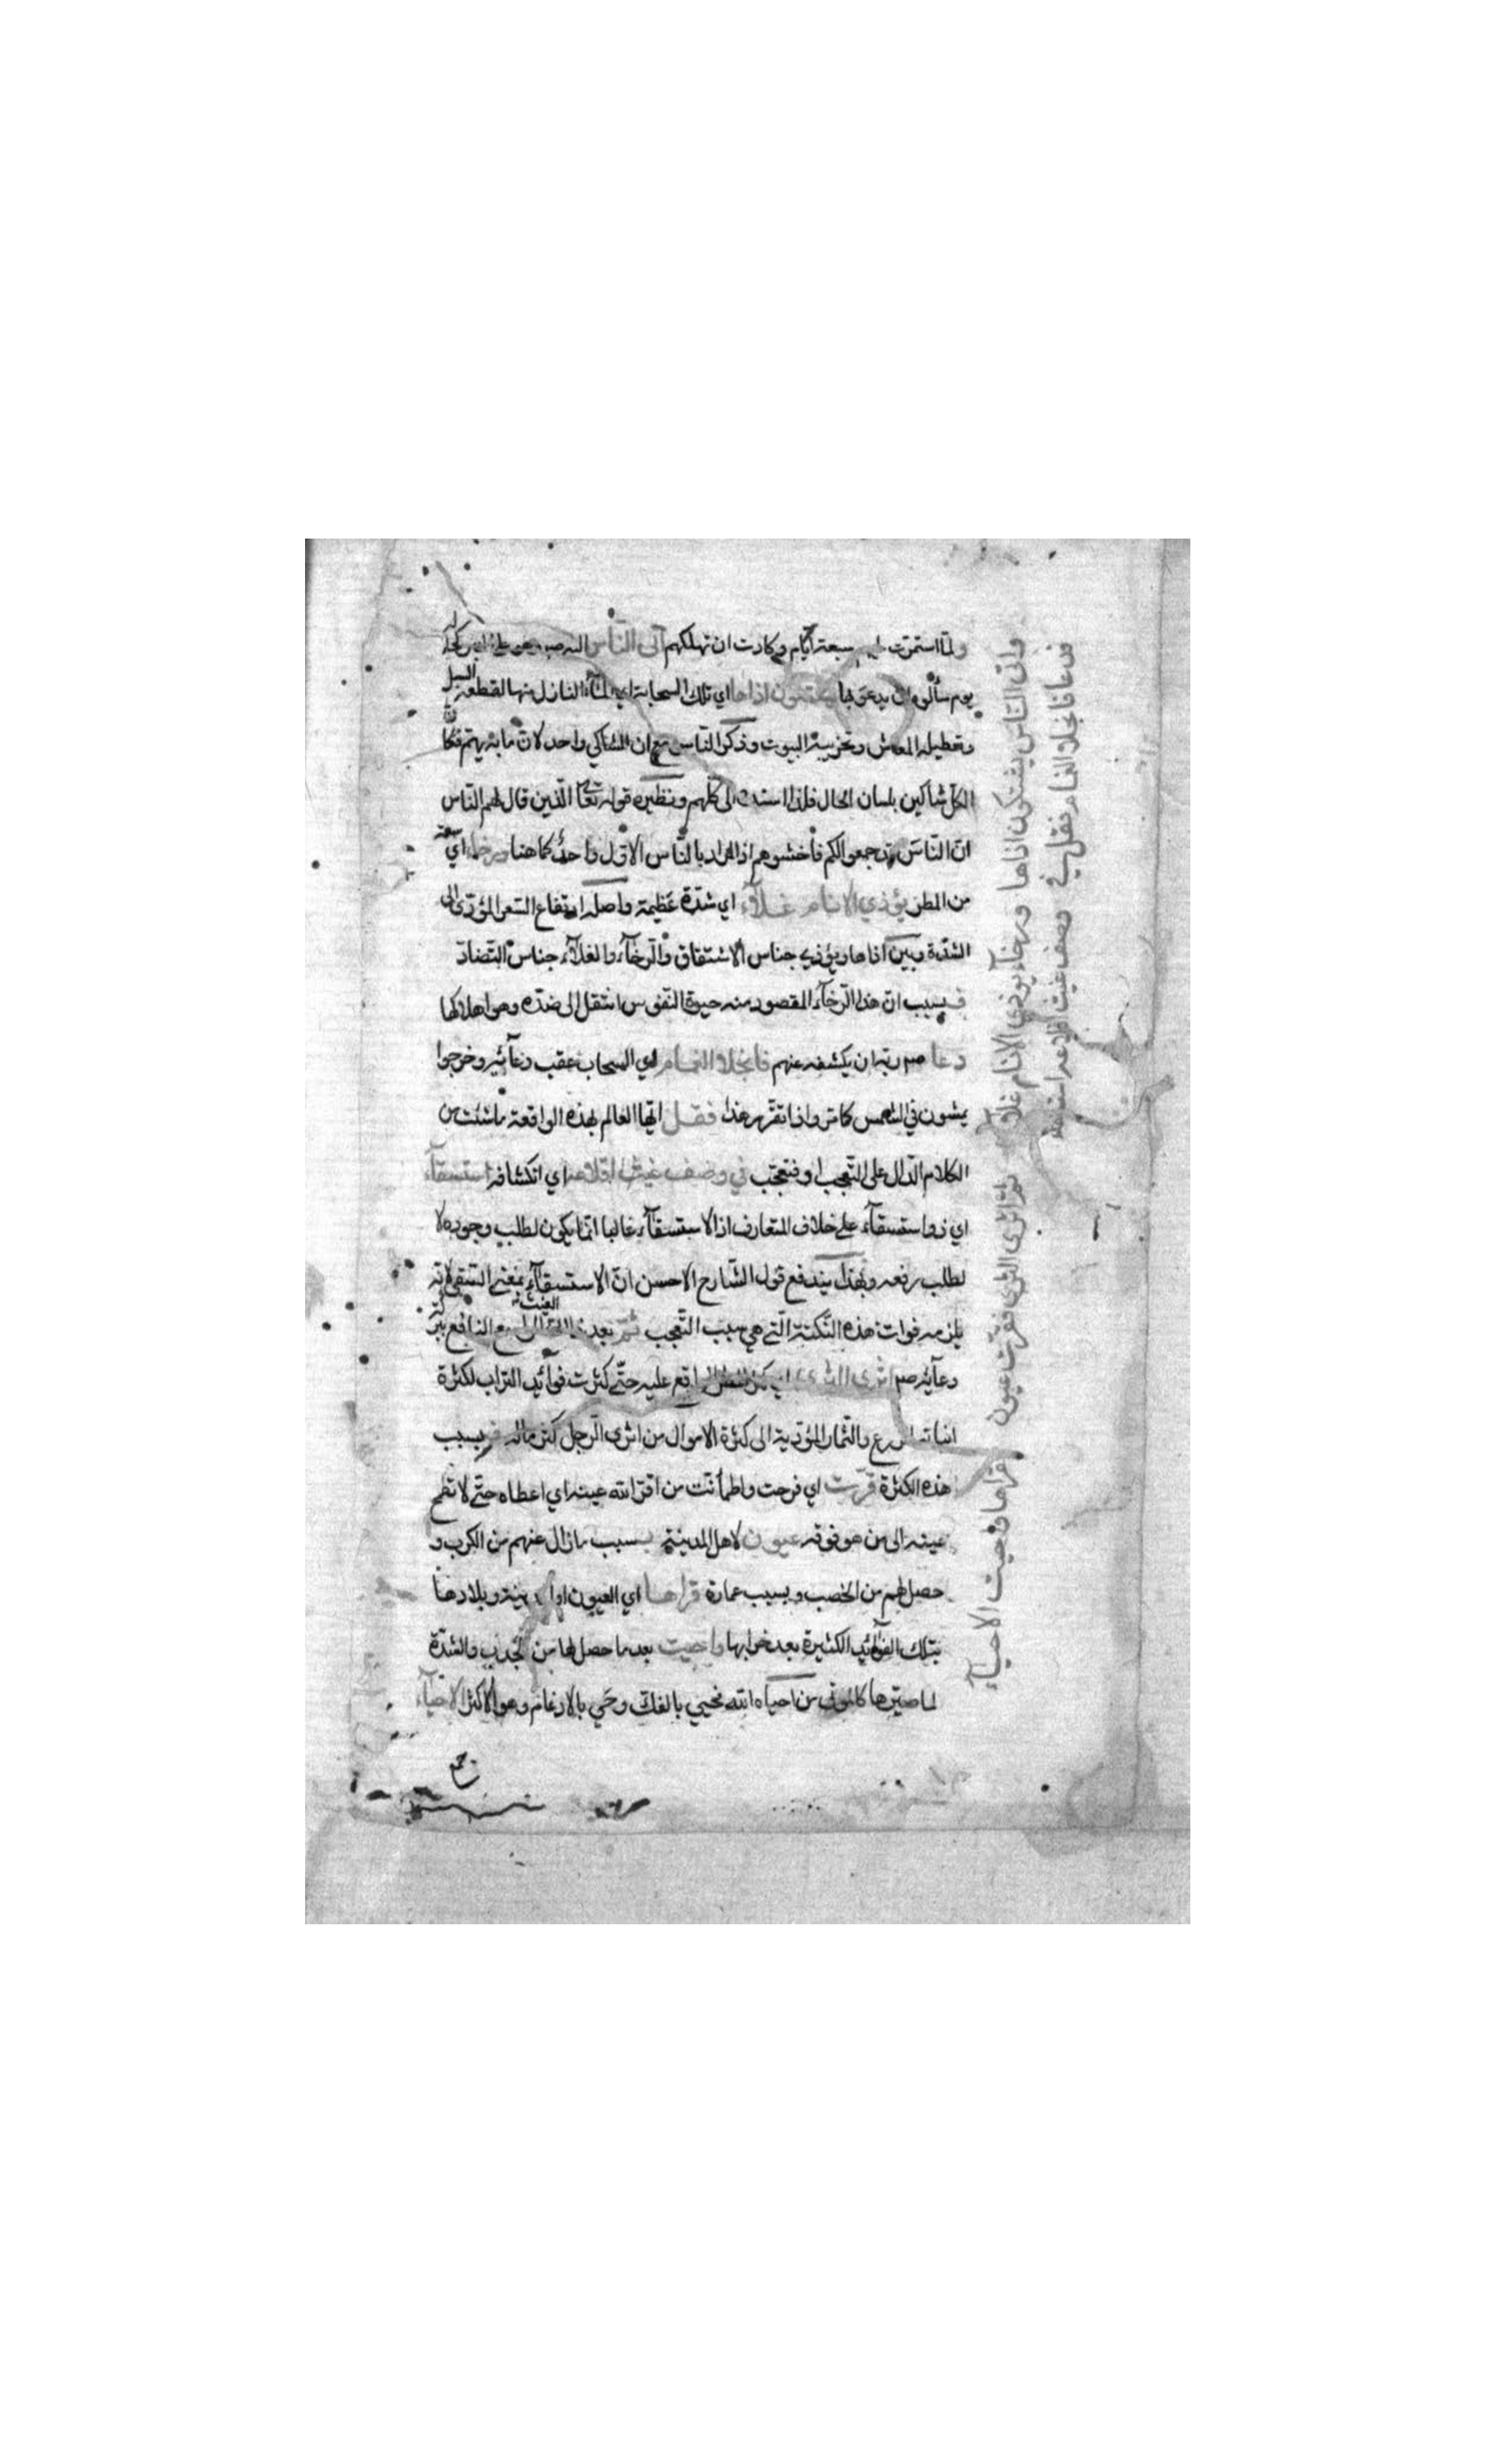 ولما استمرت سبعة ايام وكادت ان تهلكهم اتى الناس اليه
يوم سألوه ان يدعو لها يشتكون اذاها اي تلك السحابة اي الماء النازل منها لقطعه السبل
وتعطيله المعاش وتخريبه البيوت وذكر الناس مع ان الشاكي واحد لان ما به بهم فكان
الكل شاكين بلسان الحال فلذا اسند الى كلهم ونظيره قوله تعا الذين قال لهم الناس
ان الناس قد جمعوا لكم فاخشوهم اذ المراد بالناس الاول واحد كما هنا ورخاء اي سعة
من المطر يؤذي الانام غلاء اي شدة عظيمة واصله ارتفاع السعر المؤدي الى
الشدة وبين اذاها ويؤذي جناس الاشتقاق والرخاء والغلاء جناس التضاد
فبسبب ان هذا الرخاء المقصود منه حيوة النفوس انتقل الى ضده وهو اهلاكها
دعا صم ربه ان يكشفه عنهم فانجلا الغمام اي السحاب عقب دعائه وخرجوا
يمشون في الشمس كما مر واذا تقرر هذا فقل ايها العالم بهذه الواقعة ما شئت من
الكلام الدال على التعجب او فتعجب في وصف غيث اقلاعه اي انكشافه استسقاء
اي ذو استسقاء على خلاف المتعارف اذ الاستسقاء غالبا انما يكون لطلب وجوده لا
لطلب رفعه وبهذا يندفع قول الشارح الاحسن ان الاستسقاء بمعنى السقي لانه
يلزمه فوات هذه النكتة التي هي سبب التعجب ثم بعد الغيث النافع ببركة
دعائه صم اثرى الثرى الواقع عليه حتى كثرت فوائد التراب لكثرة
انباته الزرع والثمار المؤدية الى كثرة الاموال من اثرى الرجل كثر ماله فبسبب
هذه الكثرة قرت اي فرحت واطمأنت من اقر الله عينه اي اعطاه حتى لا تطمح
عينه الى من هو فوقه عيون لاهل المدينة بسبب ما زال عنهم من الكرب و
حصل لهم من الخصب وبسبب عمارة قراها اي العيون او المدينة وبلادها
بتلك الفوائد الكثيرة بعد خرابها واحييت بعد ما حصل لها من الجدب والشدة
لما صيرها كالموتى من احياه الله فحيي بالفك وحي بالادغام وهو الاكثر الاحياء
واتى الناس يشتكون اذاها ورخاء يوذي الانام غلاء
فدعا فانجلا الغمام فقل في وصف غيث اقلاعه استسقاء
ثم اثرى الثرى فقرت عيون
قراها واحييت الاحياء